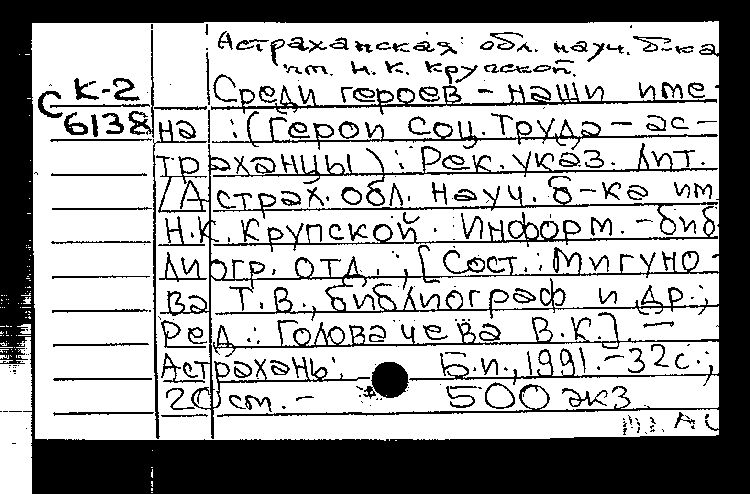 Астраханская обл. науч. б-ка
им. Н.К. Крупской.
К-2
С 6138
Среди героев - наши име-
на : (Герои Соц. Труда - ас-
траханцы) : Рек. указ. лит.
/Астрах. обл. науч. б-ка им.
Н.К. Крупской. Информ.-биб
лиогр. отд. ; [Сост.: Мигуно-
ва Т.В., библиограф и др.;
Ред.: Головачева В.К.] . —
Астрахань: Б.и., 1991. - 32 с.;
20 см. - 500 экз